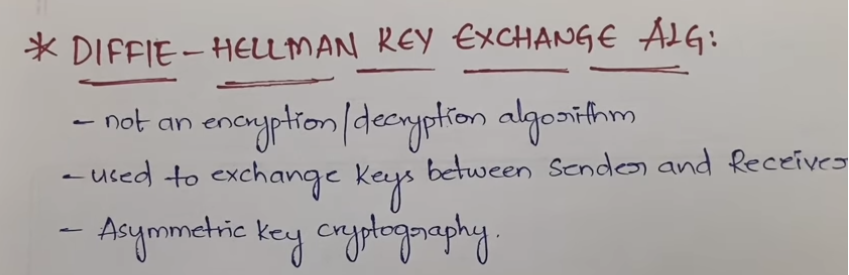 * DIFFIE - HELLMAN KEY EXCHANGE ALG:
- not an encryption/decryption algorithm
- used to exchange keys between Sender and Receiver
- Asymmetric key cryptography.